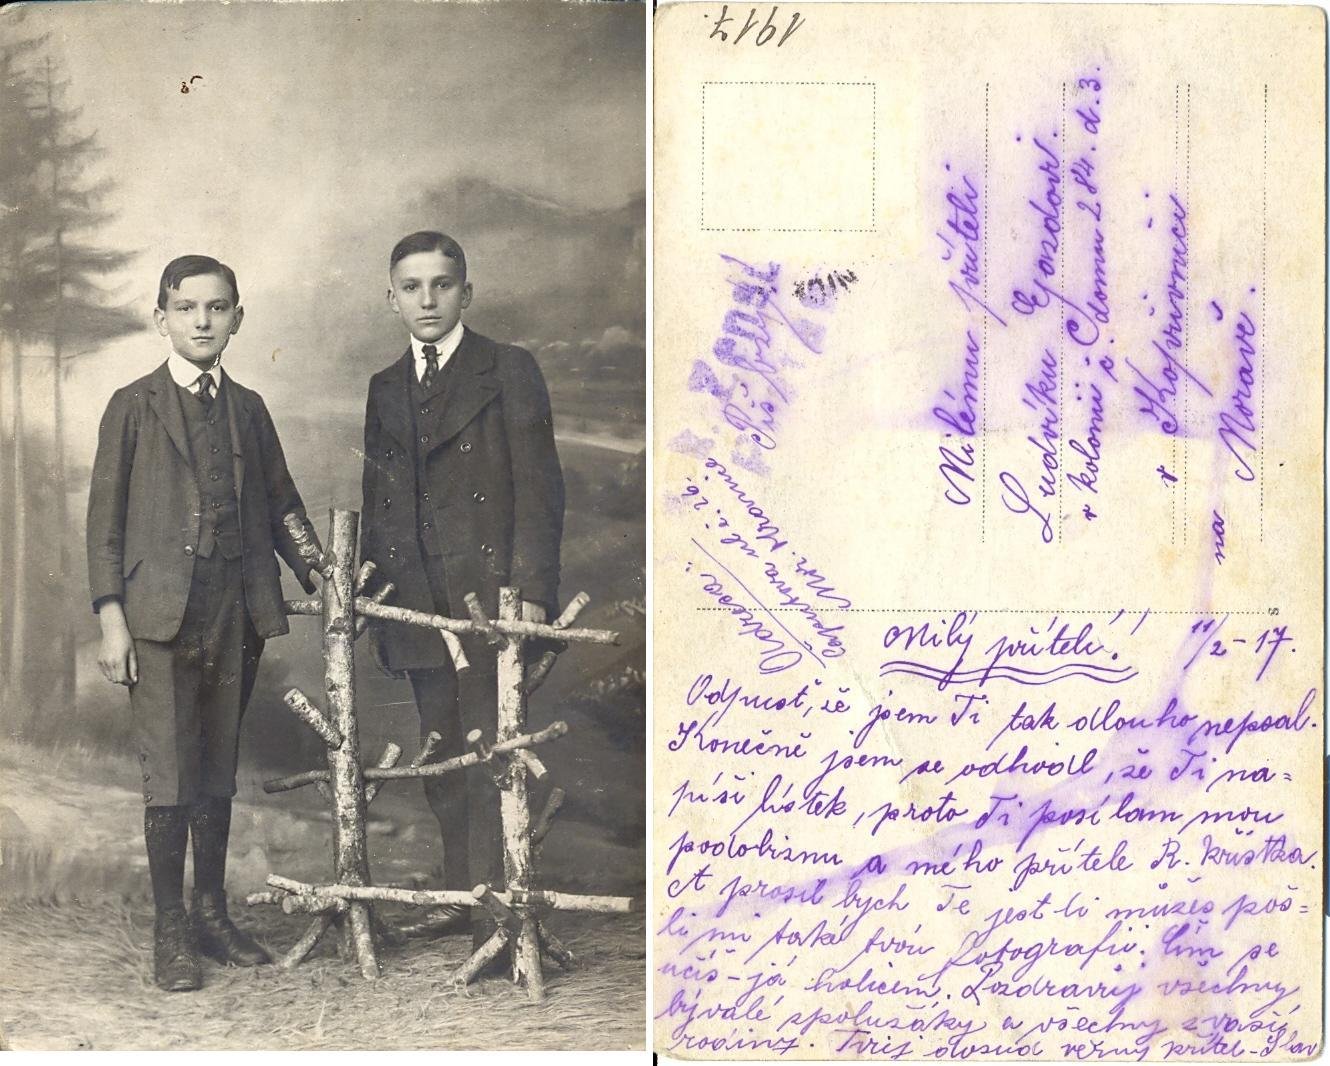 1917.
Milému příteli
Ludvíku Gozdovi
v kolonii č. domu 284. d. 3.
v Kopřivnici
na Moravě.
Adresa:
ul. č. 26.
Mor.
Piš brzy
Milý příteli! 11/2-17.
Odpusť, že jsem Ti tak dlouho nepsal.
Konečně jsem se odhodl, že Ti na=
píši lístek, proto Ti posílam mou
podobiznu a mého přítele R. Křístka.
A prosil bych Te jest li můžeš poš=
li mi také tvou fotografii. Čím se
učíš-já holičem. Pozdravuj všechny
bývalé spolužáky a všechny z vaší
rodiny. Tvůj dosud věrný přítel-Slav